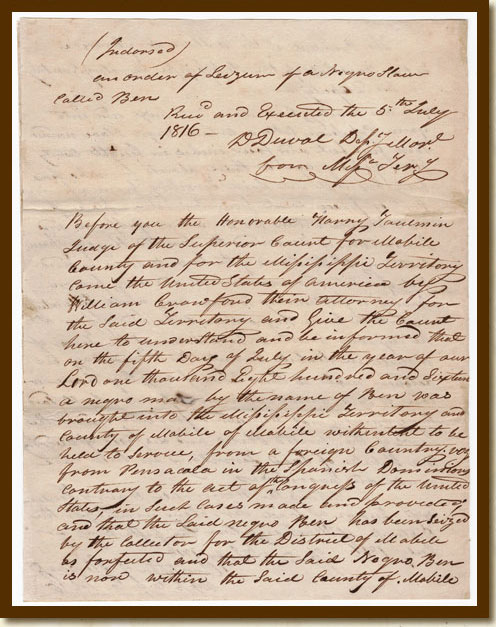 (Indorsed)
an order of Seizure of a Negro Slave
Called Ben
Recd and Executed the 5th July
1816 —
D Duval Depy Marl
from Missi Tery
Before you the Honorable Harry Toulmin
Judge of the Superior Court for Mobile
County and for the Mississippi Territory
came the United States of america by
William Crawford their attorney for
the Said Territory and Give the Court
here to understand and be informed that
on the fifth Day of July in the year of our
Lord one thousand Eight hundred and Sixteen
a negro man by the name of Ben was
brought into the Mississippi Territory and
County of Mobile of Mobile with intent to be
held to Service, from a foreign Country, viz
from Pensacola in the Spanish Dominions
contrary to the act of the Congress of the United
States in Such Cases made and provided
and that the Said negro Ben has been Seized
by the Collector for the District of Mobile
as forfeited and that the Said Negro Ben
is now within the Said County of Mobile